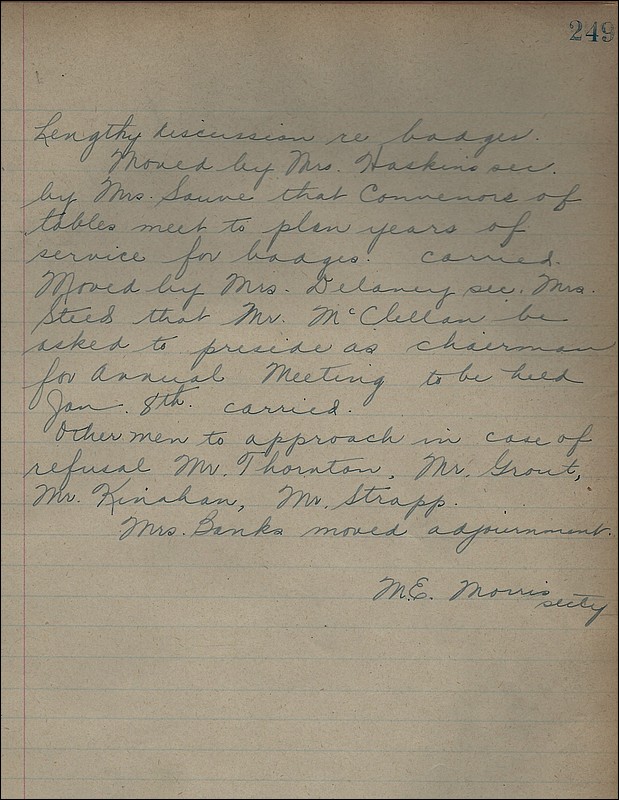 249
Lengthy discussion re badges.
Moved by Mrs. Haskins sec.
by Mrs. Sauve that Convenors of
tables meet to plan years of
service for badges. carried.
Moved by Mrs. Delaney sec. Mrs.
Steed that Mr. McClellan be
asked to preside as chairman
for Annual Meeting to be held
Jan. 8th. carried.
Other men to approach in case of
refusal Mr. Thornton, Mr. Grout,
Mr. Kinahan, Mr. Strapp.
Mrs. Banks moved adjournment.
M.E. Morris
secty